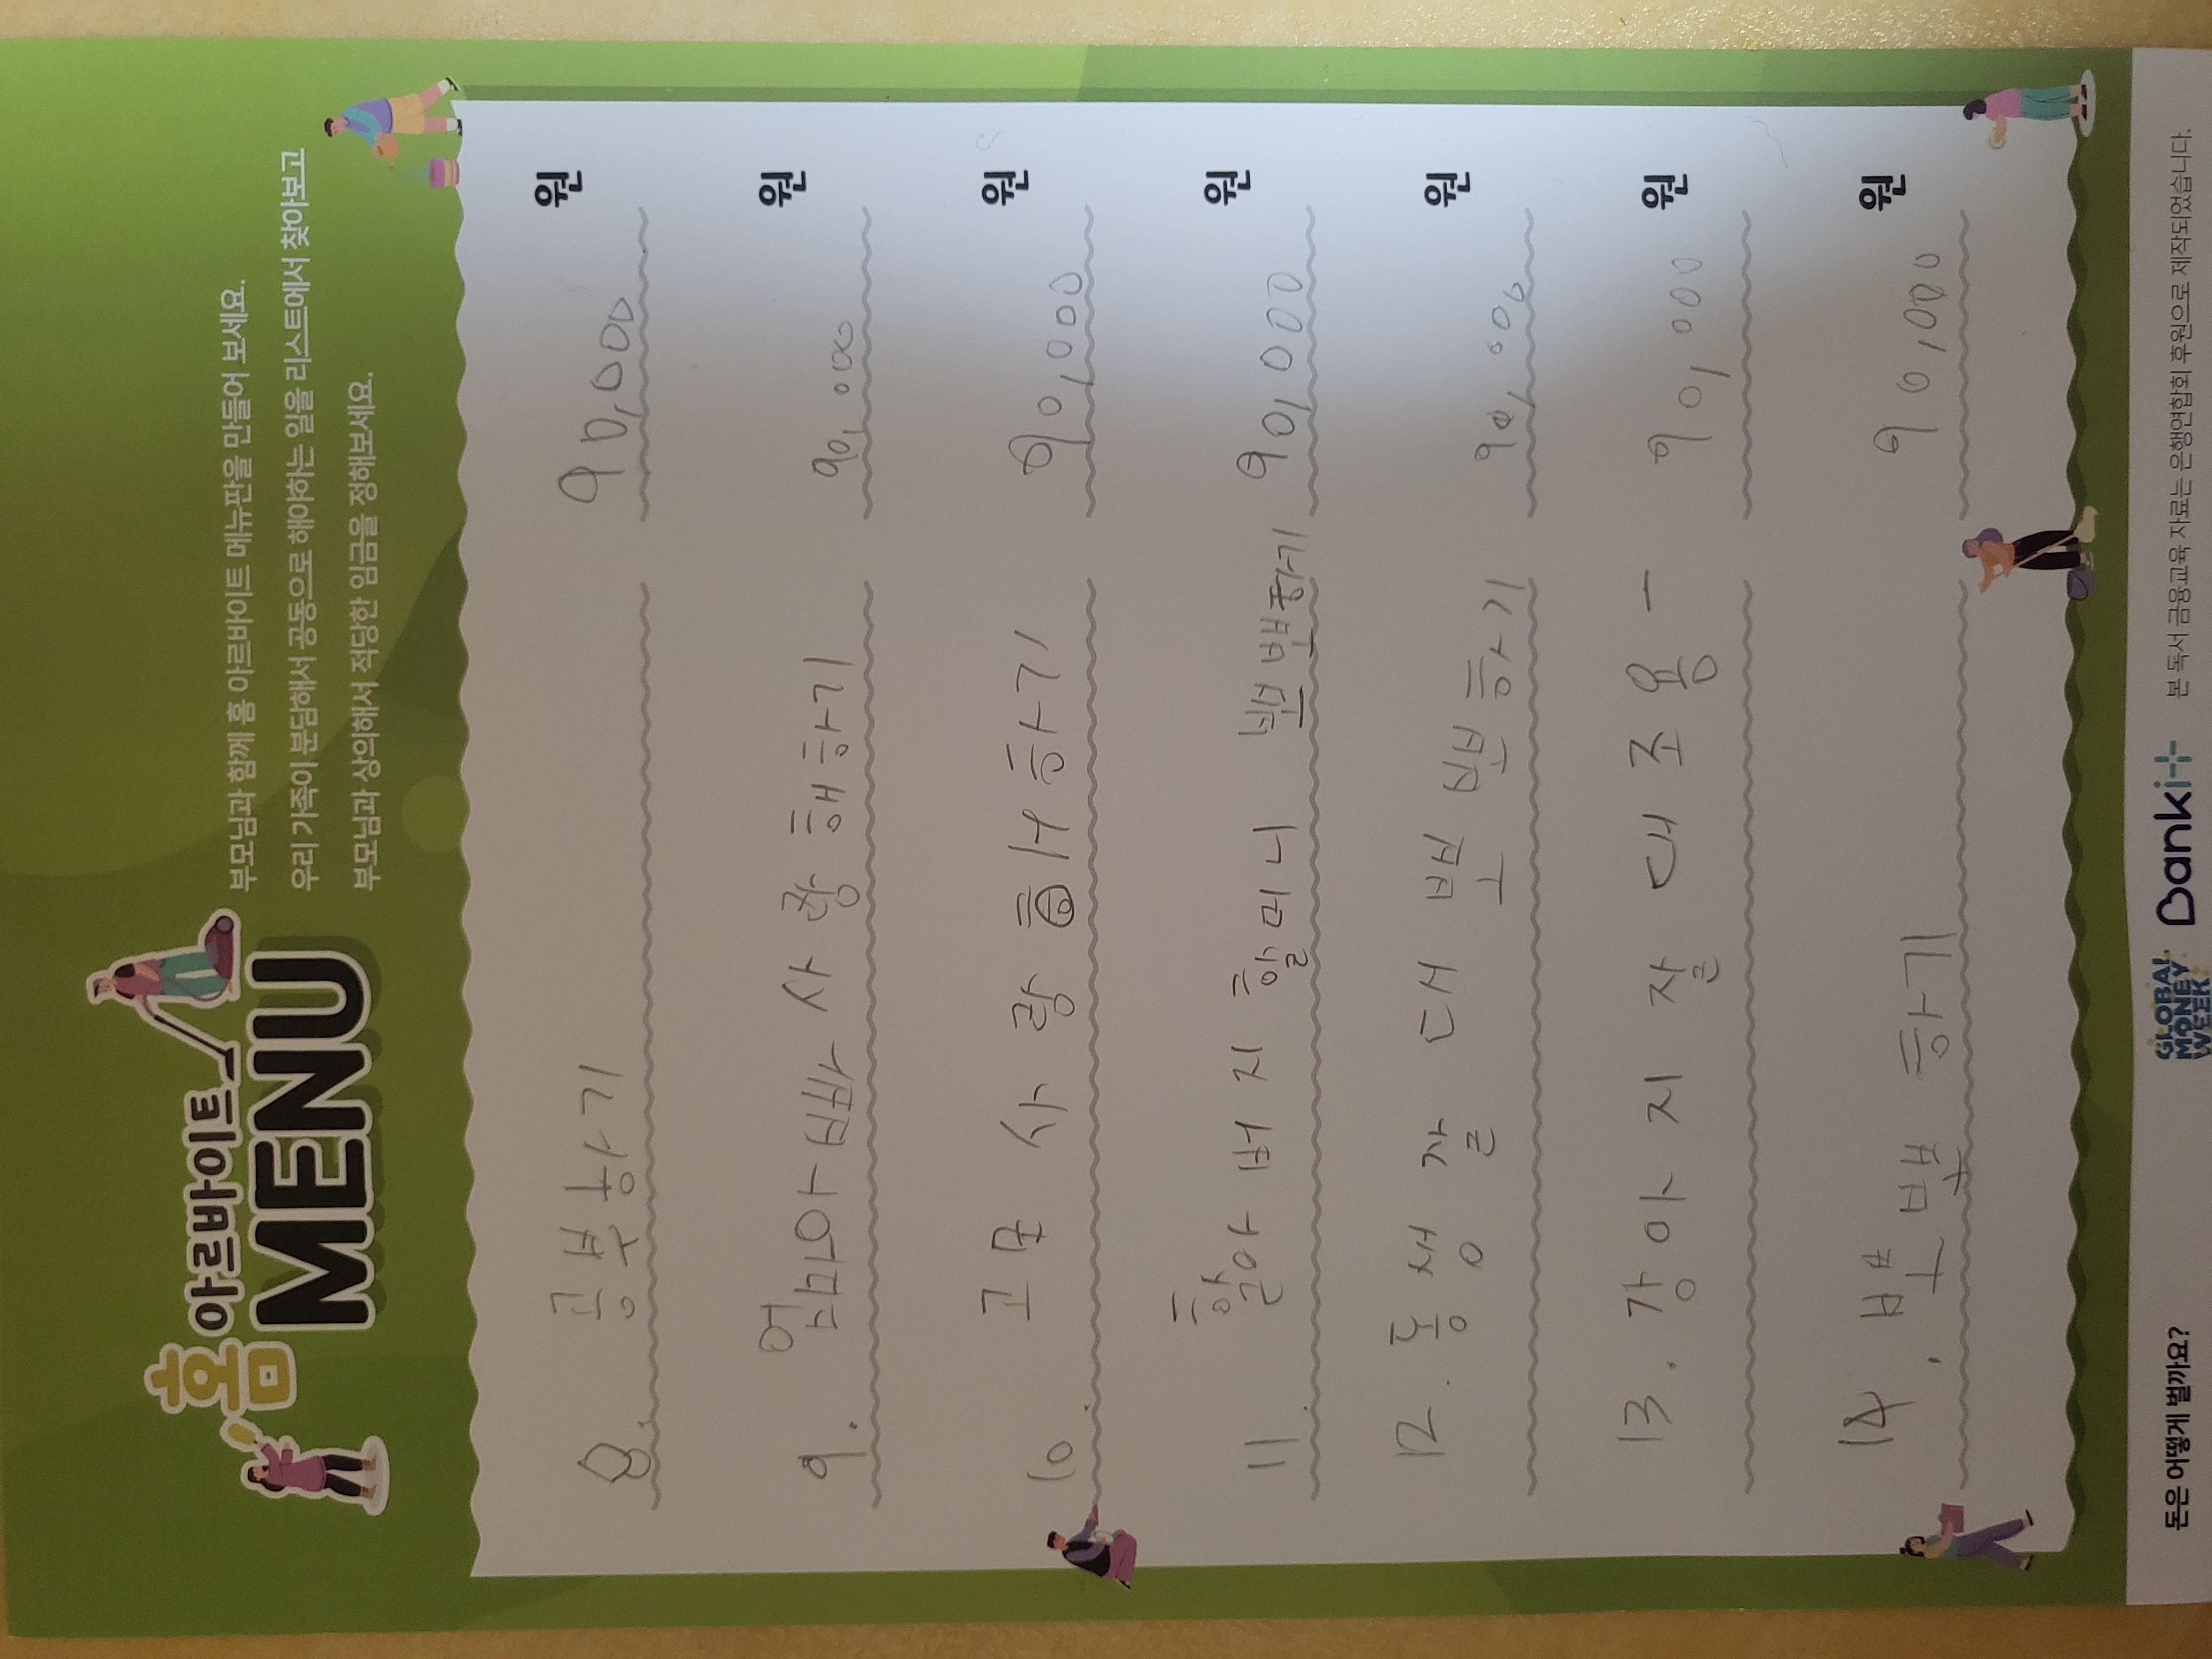 홈 아르바이트
MENU
부모님과 함께 홈 아르바이트 메뉴판을 만들어 보세요.
우리 가족이 분담해서 공동으로 해야하는 일을 리스트에서 찾아보고
부모님과 상의해서 적당한 임금을 정해보세요.
8. 공부하기 90,000 원
9. 엄마아빠 사랑해하기 90,000 원
10. 고모 사랑 하기 90,000 원
11. 할아버지 할머니 하기 90,000 원
12. 동생 잘 대 하기 90,000 원
13. 강아지 잘 대 조용- 90,000 원
14. 뽀뽀하기 90,000 원
돈은 어떻게 벌까요?
GLOBAL MONEY WEEK
Banki
본 독서 금융교육 자료는 은행연합회 후원으로 제작되었습니다.